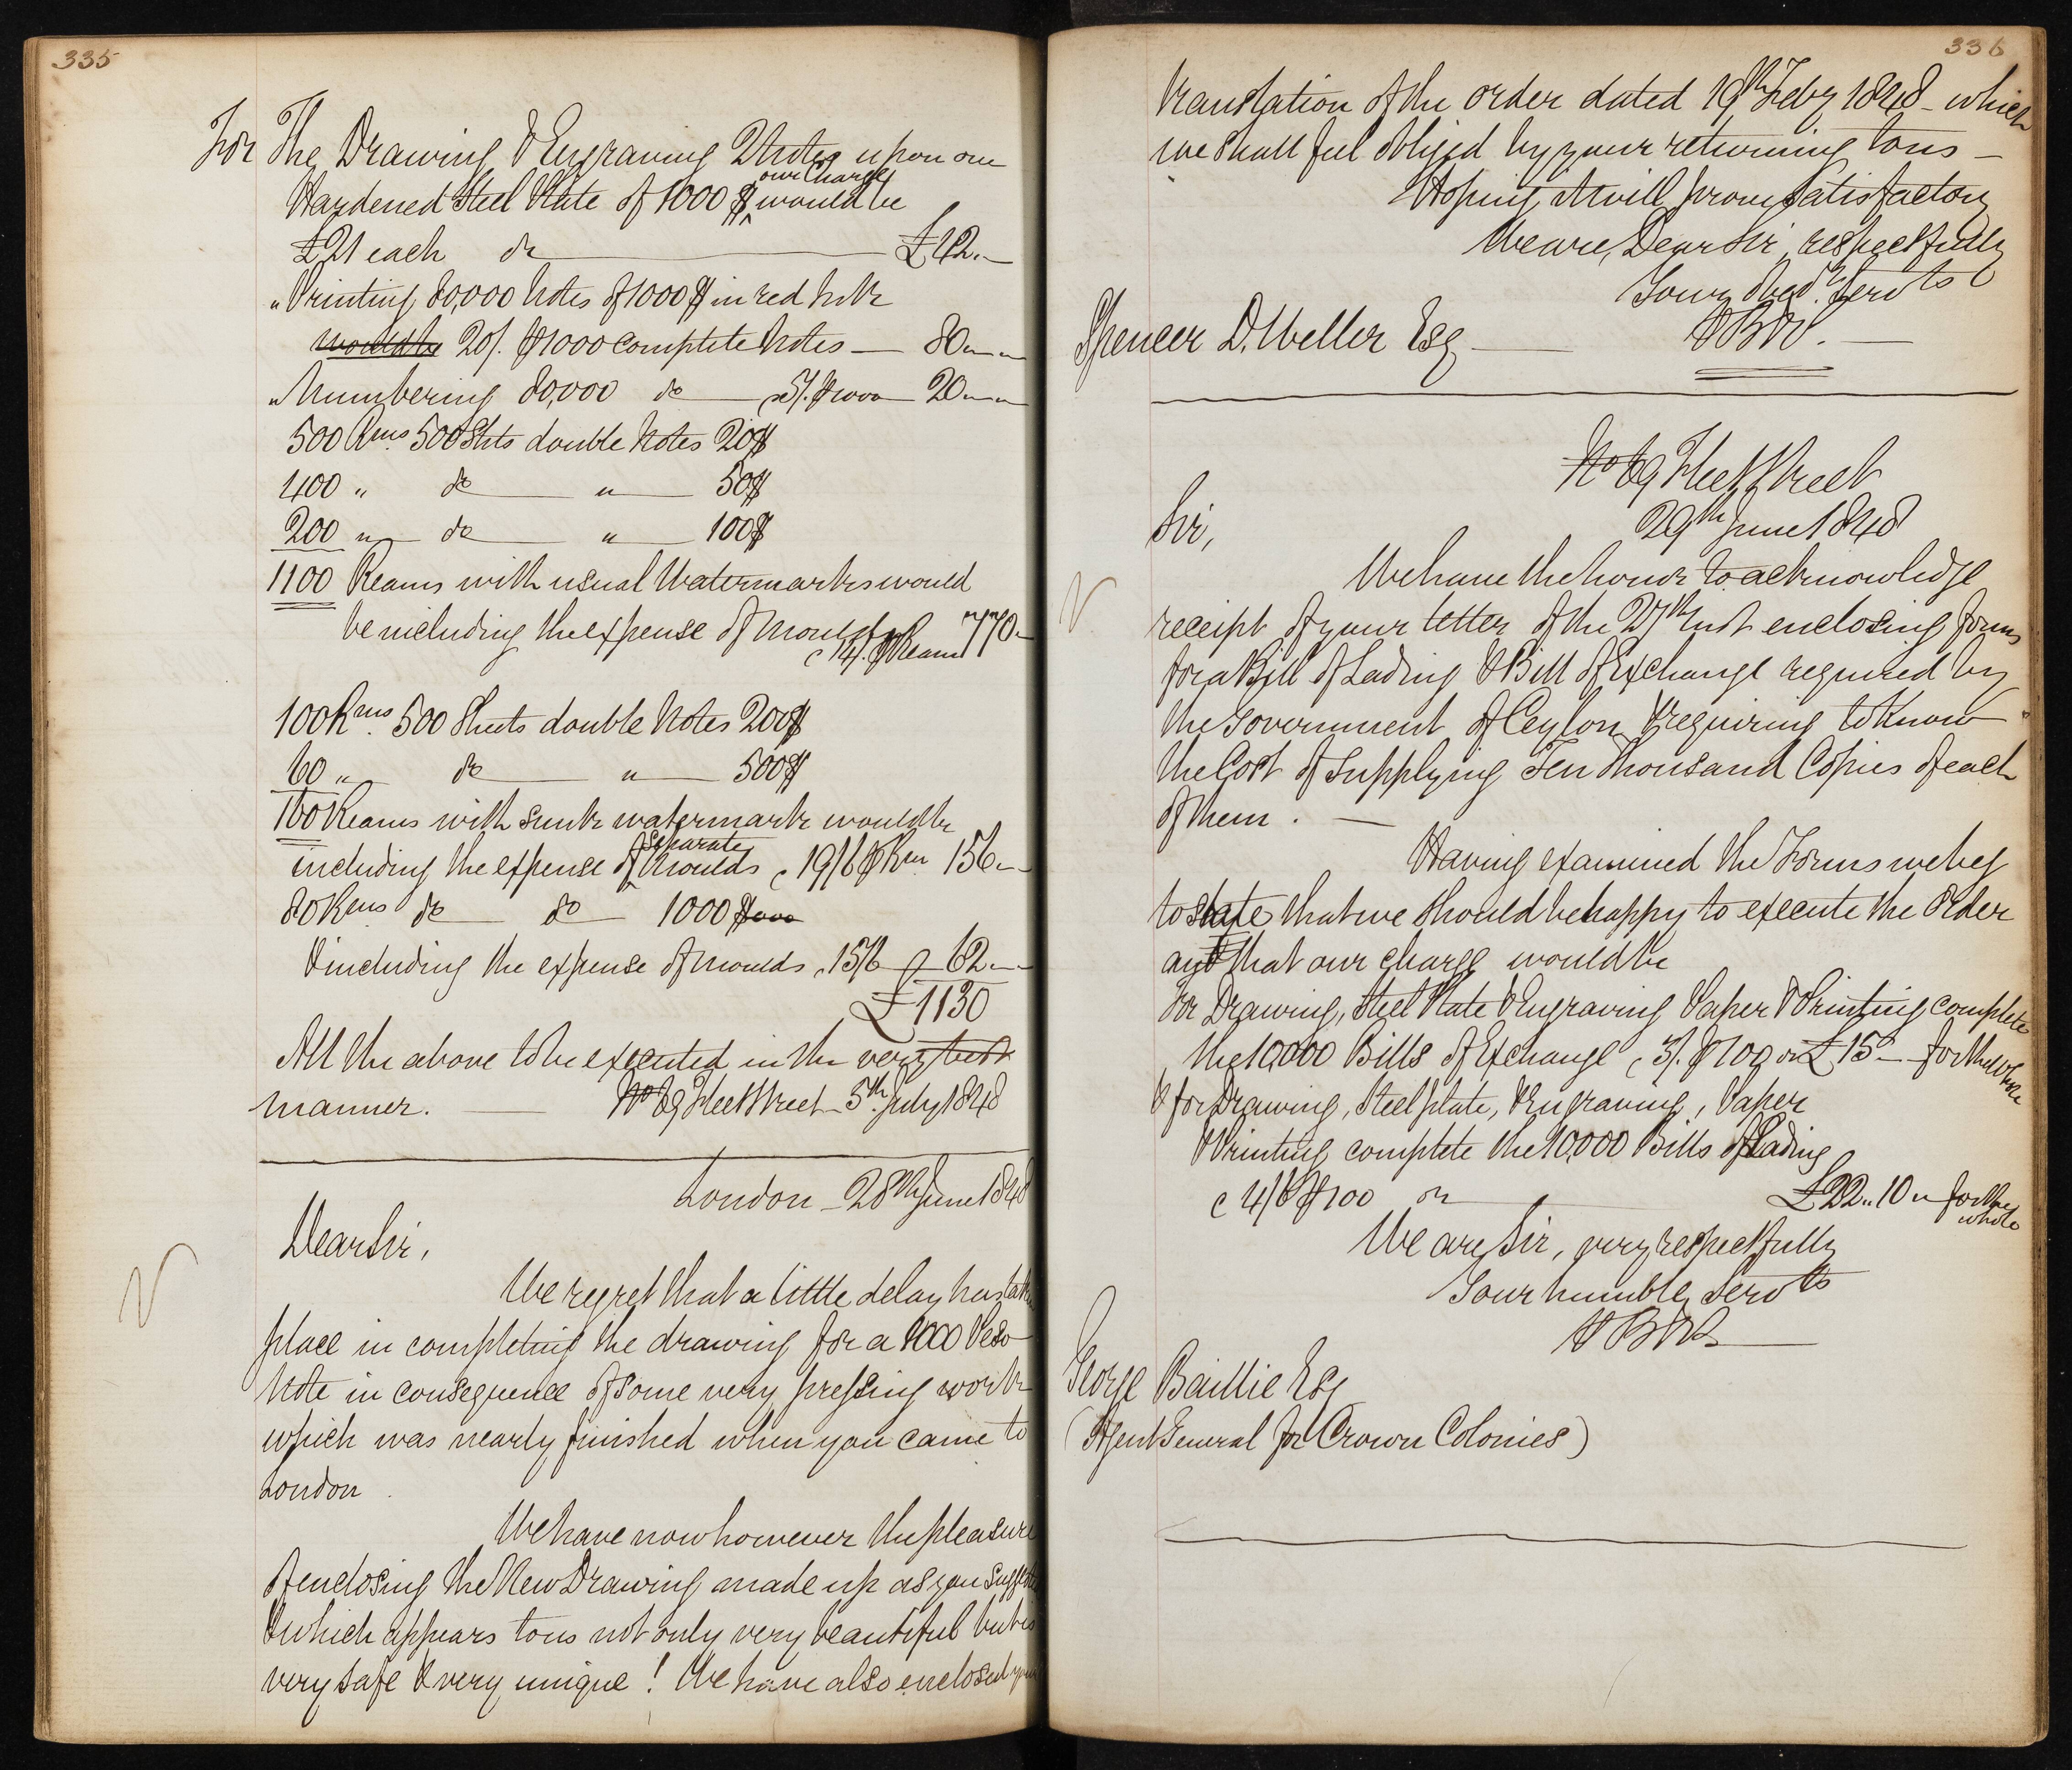 335
For The Drawing & Engraving 2 Notes upon one
Hardened Steel Plate of 1000 $ our Charge would be
£21 each or £42..—
" Printing 80,000 Notes of 1000 $ in red Ink
would be 20/. ₱ 1000 complete Notes — 80 " "
" Numbering 80,000 do 5/. ₱ 1000 — 20 " "
500 Rms. 500 Shts double Notes 20$
400 " do " 50$
200 " do " 100$
1100 Reams with usual Watermarks would
be including the expense of Moulds
@ 14/. ₱ Ream 770 "
100 Rms. 500 Sheets double Notes 200$
60 " do " 500$
160 Reams with sunk watermark would be
including the expense of separate Moulds @ 19/6 ₱ Rm 156 " "
80 Rms do do 1000 $
& including the expense of Moulds @ 15/6 62 " "
£1130
All the above to be executed in the very best
manner. — No 69 Fleet Street 5th. July 1848
London — 28th June 1848
Dear Sir,
We regret that a little delay has taken
place in completing the drawing for a 1000 Peso
Note in consequence of some very pressing work
which was nearly finished when you came to
London
We have now however the pleasure
of enclosing the New Drawing made up as you
& which appears to us not only very beautiful but is
very safe & very unique! We have also enclosed your
336
translation of the order dated 19th Feby 1848 — which
we shall feel obliged by your returning to us —
Hoping it will prove satisfactory
We are, Dear Sir, respectfully
Your Obedt. Servts
PBW. —
Spencer D. Weller Esq —
No 69 Fleet Street
29th June 1848
Sir,
We have the honor to acknowledge
receipt of your letter of the 27th Inst enclosing forms
for a Bill of Lading & Bill of Exchange required by
the Government of Ceylon & requiring to know
the Cost of supplying Ten Thousand Copies of each
of them. —
Having examined the Forms we beg
to state that we should be happy to execute the Order
and that our charge would be
For Drawing, Steel Plate & Engraving Paper & Printing complete
the 10,000 Bills of Exchange @ 3/. ₱ 100 or £15 — for the whole
& for Drawing, Steel plate, & Engraving, Paper
& Printing complete the 10,000 Bills of Lading
@ 4/6 ₱ 100 or £22..10 " for the whole
We are Sir, very respectfully
Your humble Servts
George Baillie Esq
(Agent General for Crown Colonies)